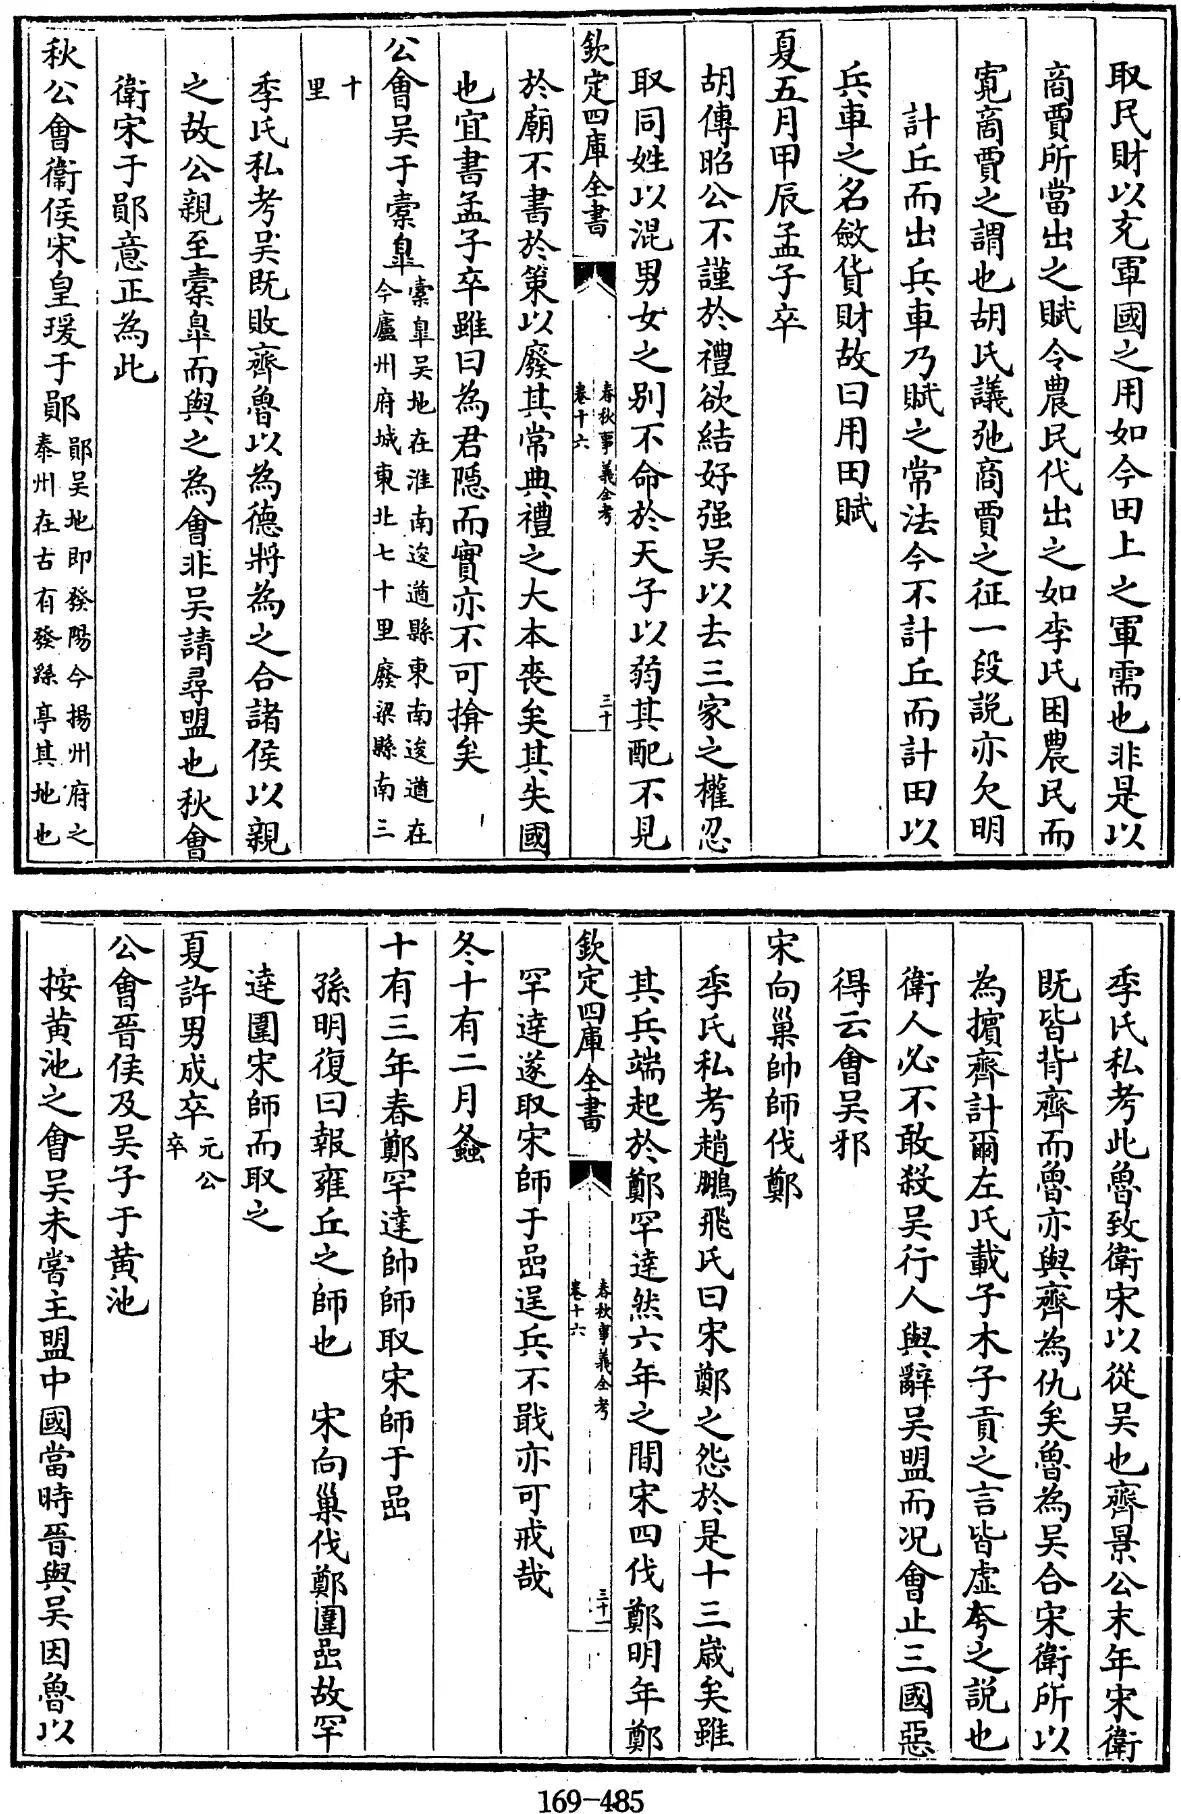 取民財以充軍國之用如今田上之軍需也非是以
商賈所當出之賦令農民代出之如李氏困農民而
寛商賈之謂也胡氏議弛商賈之征一段説亦欠明
計丘而出兵車乃賦之常法今不計丘而計田以
兵車之名斂貨財故曰用田賦
夏五月甲辰孟子卒
胡傳昭公不謹於禮欲結好强吴以去三家之權忍
取同姓以混男女之别不命於天子以弱其配不見
欽定四庫全書
春秋事義全考
卷十六
三十
於廟不書於策以廢其常典禮之大本喪矣其失國
也宜書孟子卒雖曰為君隠而實亦不可揜矣
公會吴于橐臯
橐臯吴地在淮南逡遒縣東南逡遒在
今廬州府城東北七十里廢梁縣南三
十
里
季氏私考吴既敗齊魯以為德將為之合諸侯以親
之故公親至橐臯而與之為會非吴請尋盟也秋會
衛宋于鄖意正為此
秋公會衛侯宋皇瑗于鄖
鄖吴地即發陽今揚州府之
泰州在古有發繇亭其地也
季氏私考此魯致衛宋以從吴也齊景公末年宋衛
既皆背齊而魯亦與齊為仇矣魯為吴合宋衛所以
為擯齊計爾左氏載子木子貢之言皆虚夸之説也
衛人必不敢殺吴行人與辭吴盟而况會止三國惡
得云會吴邪
宋向巢帥師伐鄭
季氏私考趙鵬飛氏曰宋鄭之怨於是十三歳矣雖
其兵端起於鄭罕逹然六年之間宋四伐鄭明年鄭
欽定四庫全書
春秋事義全考
卷十六
三十一
罕逹遂取宋師于嵒逞兵不戢亦可戒哉
冬十有二月螽
十有三年春鄭罕逹帥師取宋師于嵒
孫明復曰報雍丘之師也 宋向巢伐鄭圍嵒故罕
逹圍宋師而取之
夏許男成卒
元公
卒
公會晉侯及吴子于黄池
按黄池之會吴未嘗主盟中國當時晉與吴因魯以
169-485